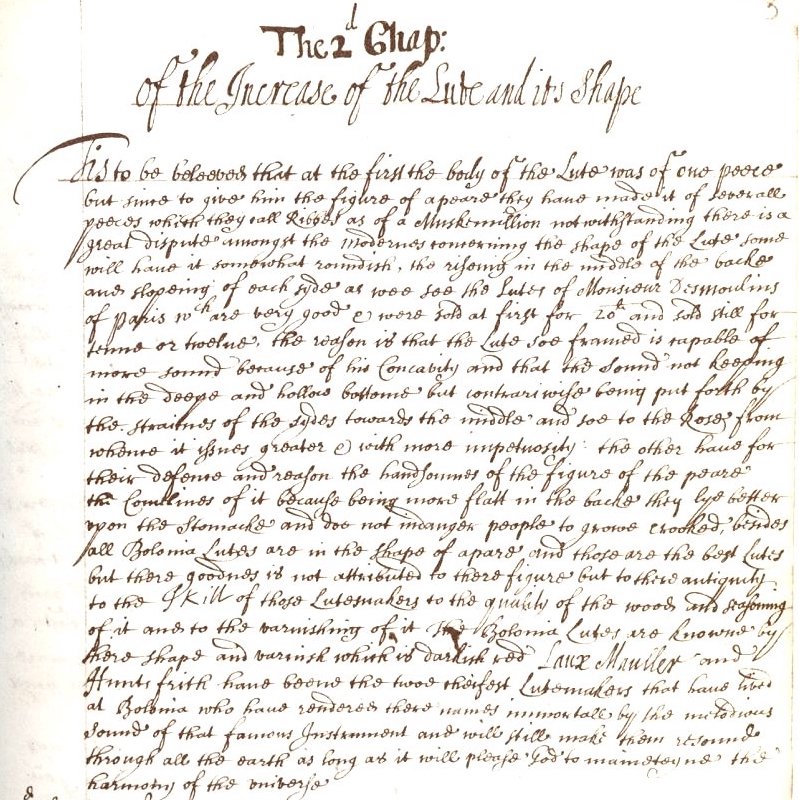 The 2d Chap:
of the Increase of the Lute and its Shape
Tis to be beleeved that at the first the body of the Lute was of one peece
but since to give him the figure of a peare they have made it of severall
peeces which they call Ribbes as of a Muskemillion notwithstanding there is a
great dispute amongst the modernes concerning the shape of the Lute some
will have it somewhat roundish, the riseing in the middle of the backe
and slopeing of each syde as wee see the Lutes of Monsieur Desmoulins
of Paris wch are very good & were sold at first for 20 and sold still for
tenne or twelve, the reason is that the Lute soe framed is capable of
more sound because of his Concavity and that the sound not keeping
in the deepe and hollow bottome but contrariwise being put forth by
the straitnes of the sydes towards the middle and soe to the Rose, from
whence it issues greater & with more impetuosity: the other have for
their defence and reason the handsomnes of the figure of the peare
the Comelines of it because being more flatt in the backe they lye better
upon the stomacke and doe not indanger people to growe crooked, besides
all Bolonia Lutes are in the shape of a pare and those are the best Lutes
but there goodnes is not attributed to there figure but to there antiquity
to the Skill of those Lutemakers to the quality of the wood and seasoning
of it and to the varnishing of it The Bolonia Lutes are knowne by
there shape and varnish which is darkish red Laux Mauller and
Hunts frith have beene the twoe cheifest Lutemakers that have lived
at Bolonia who have rendered there names immortall by the melodious
sound of that famous Instrument and will still make them resound
through all the earth as long as it will please God to mameteyne the
harmony of the universe